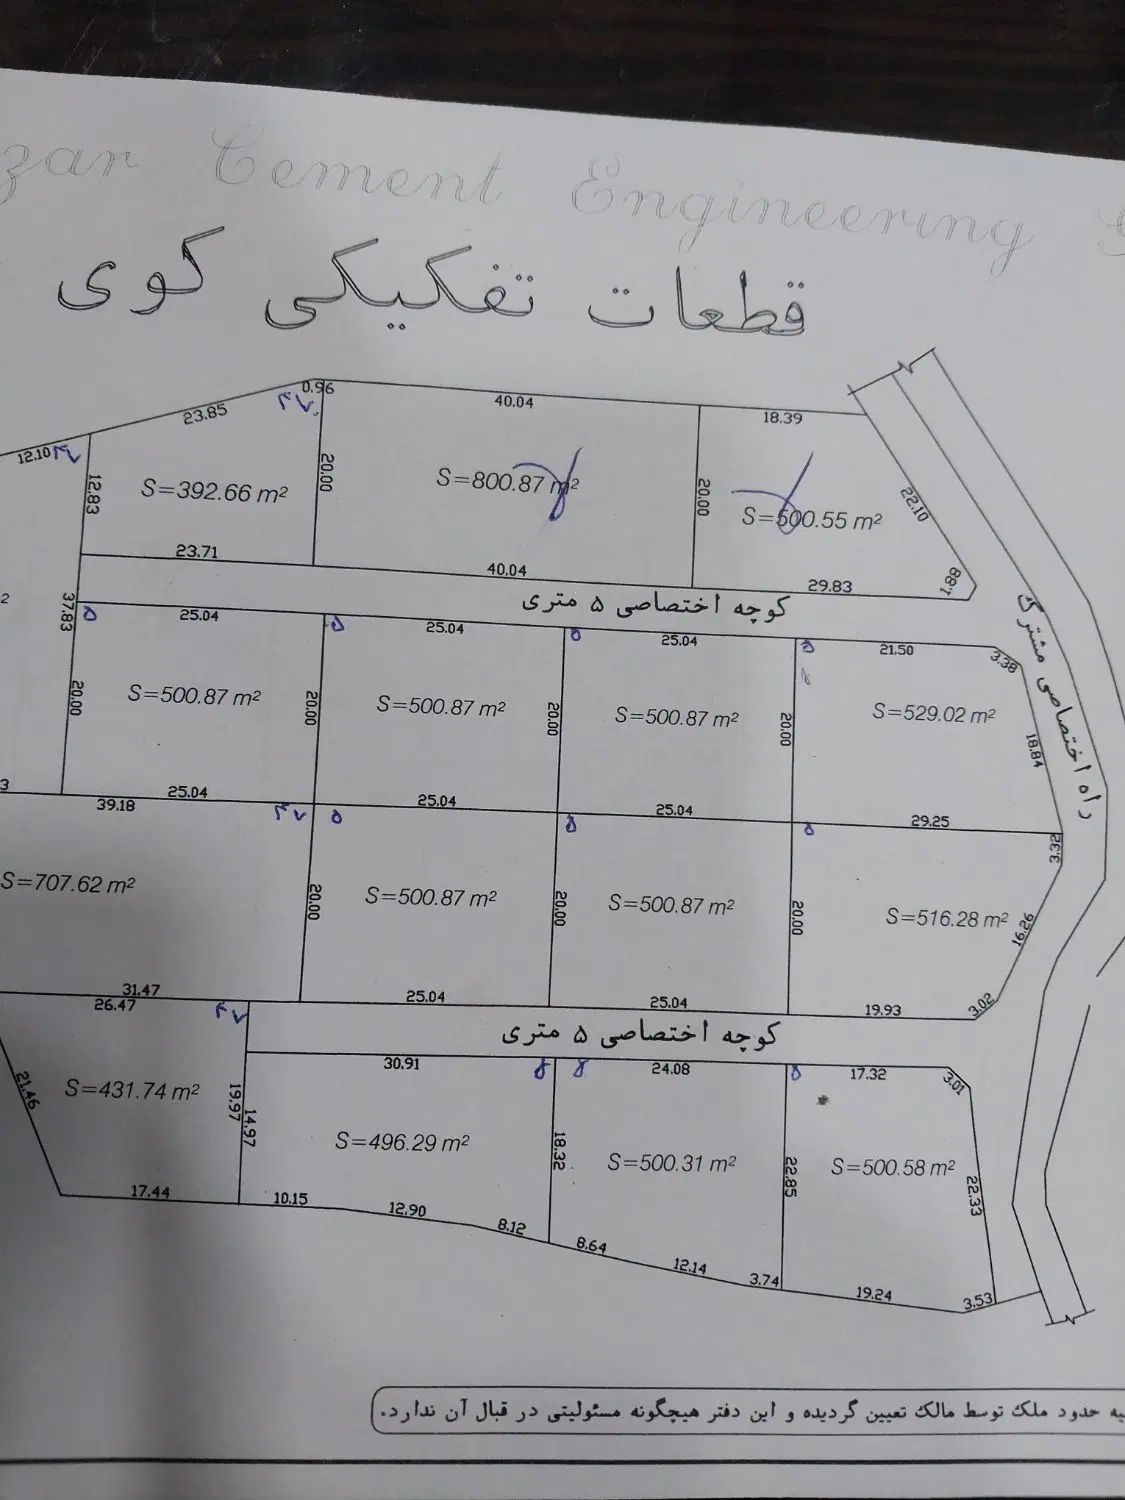 zar Cement Engineering
قطعات تفکیکی کوی
0.96
40.04
18.39
23.85
12.10
12.83
S=392.66 m²
20.00
S=800.87 m²
20.00
S=500.55 m²
22.10
1.88
23.71
40.04
29.83
کوچه اختصاصی ۵ متری
راه اختصاصی مشترک
2
37.83
25.04
25.04
25.04
21.50
3.38
20.00
S=500.87 m²
20.00
S=500.87 m²
20.00
S=500.87 m²
20.00
S=529.02 m²
18.84
3
39.18
25.04
25.04
25.04
29.25
3.32
S=707.62 m²
20.00
S=500.87 m²
20.00
S=500.87 m²
20.00
S=516.28 m²
16.26
3.02
31.47
26.47
25.04
25.04
19.93
کوچه اختصاصی ۵ متری
30.91
24.08
17.32
3.01
21.46
S=431.74 m²
19.97
14.97
S=496.29 m²
18.32
S=500.31 m²
22.85
S=500.58 m²
22.33
17.44
10.15
12.90
8.12
8.64
12.14
3.74
19.24
3.53
حدود ملک توسط مالک تعیین گردیده و این دفتر هیچگونه مسئولیتی در قبال آن ندارد.